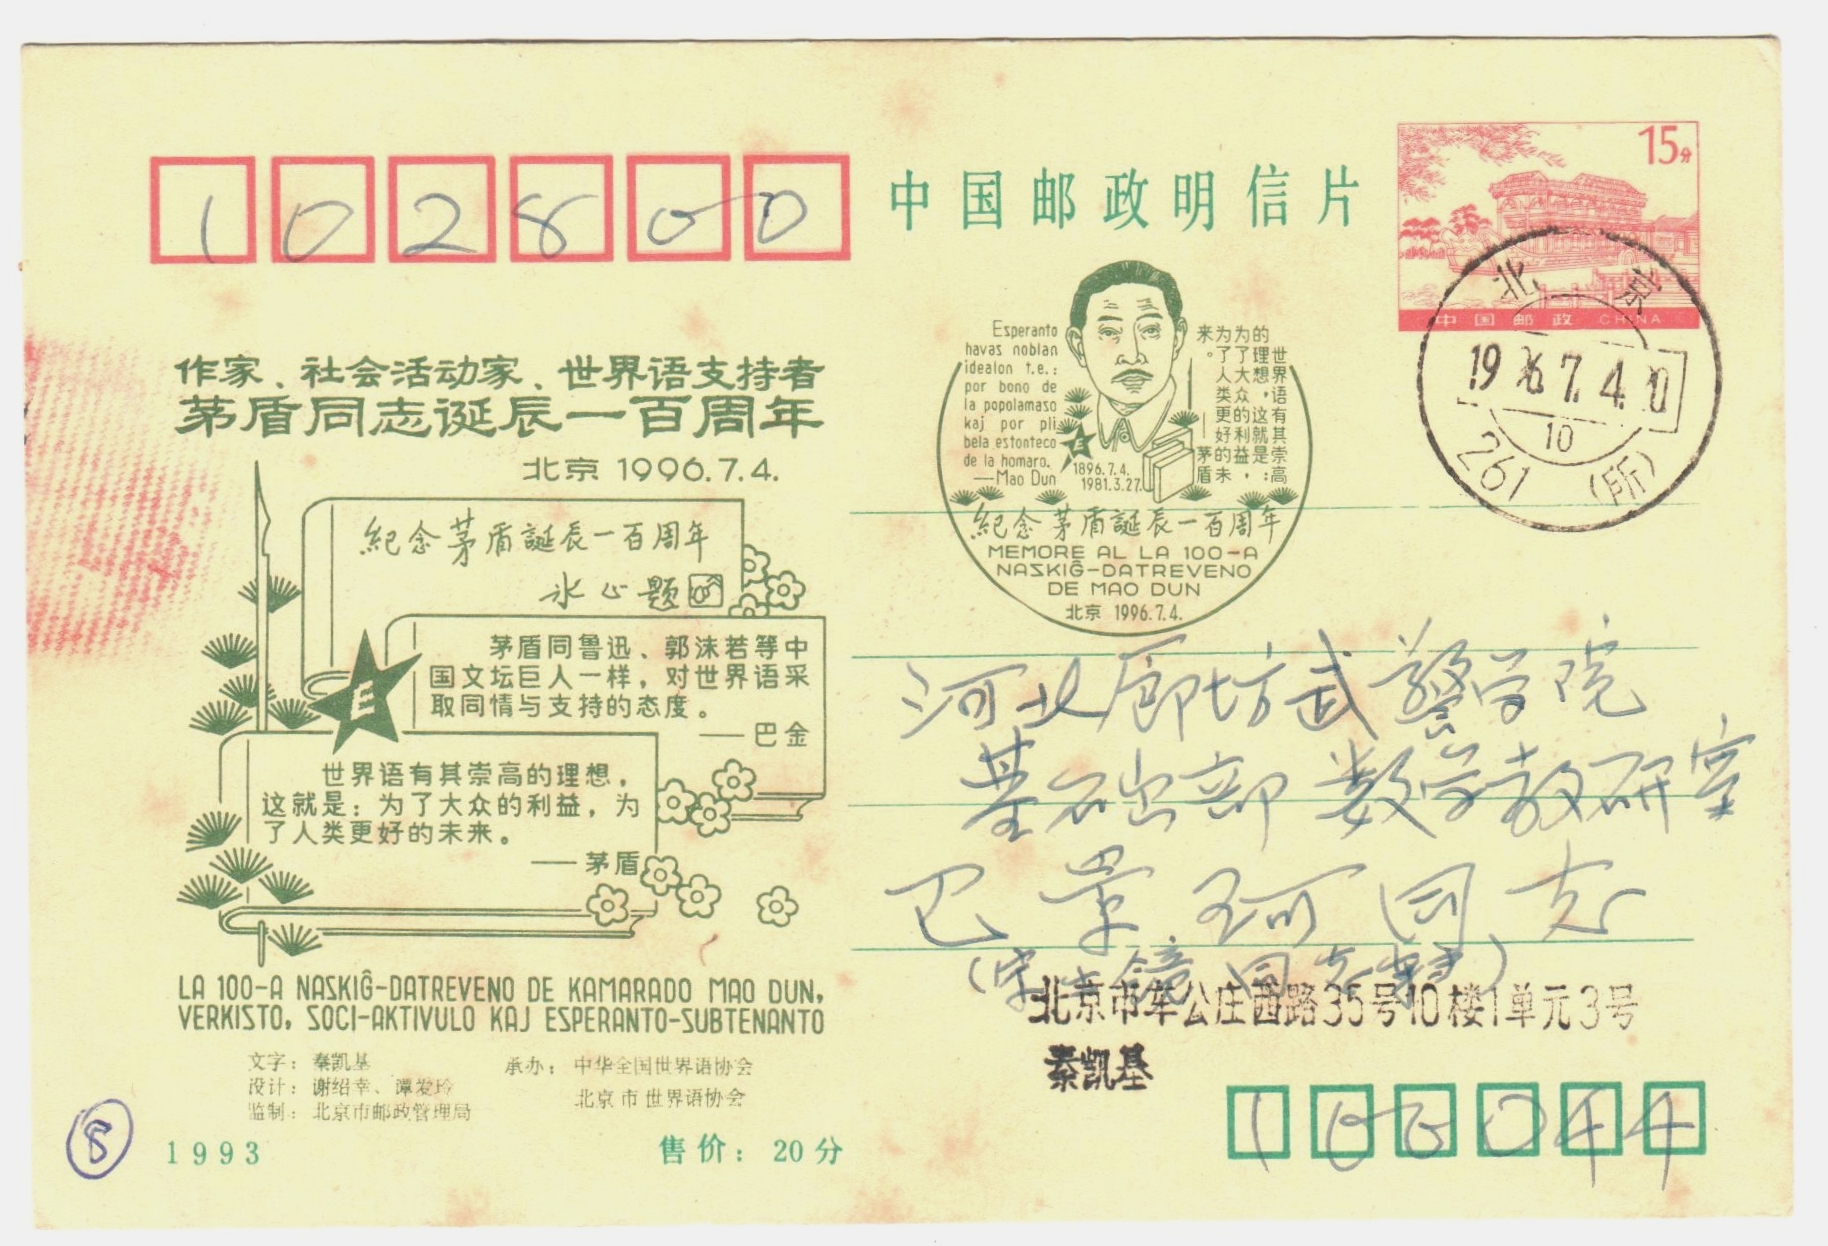 102800
中国邮政明信片
15分
中国邮政 CHINA
北京
1996.7.4.10
10
261(所)
作家、社会活动家、世界语支持者
茅盾同志诞辰一百周年
北京 1996.7.4.
紀念茅盾誕辰一百周年
冰心题
茅盾同鲁迅、郭沫若等中
国文坛巨人一样，对世界语采
取同情与支持的态度。
——巴金
E
世界语有其崇高的理想，
这就是：为了大众的利益，为
了人类更好的未来。
——茅盾
LA 100-A NASKIĜ-DATREVENO DE KAMARADO MAO DUN,
VERKISTO, SOCI-AKTIVULO KAJ ESPERANTO-SUBTENANTO
文字：秦凯基
设计：谢绍幸、谭发玲
监制：北京市邮政管理局
承办：中华全国世界语协会
北京市世界语协会
8
1993
售价：20分
Esperanto
havas noblan
idealon t.e.:
por bono de
la popolamaso
kaj por pli
bela estonteco
de la homaro.
—Mao Dun
世界语有其崇高
的理想，这就是：
为了大众的利益，
为了人类更好的未
来。——茅盾
E
1896.7.4.
1981.3.27.
紀念茅盾誕辰一百周年
MEMORE AL LA 100-A
NASKIĜ-DATREVENO
DE MAO DUN
北京 1996.7.4.
河北廊坊武警学院
基础部数学教研室
巴 珂同志
北京市车公庄西路35号10楼1单元3号
秦凯基
100044